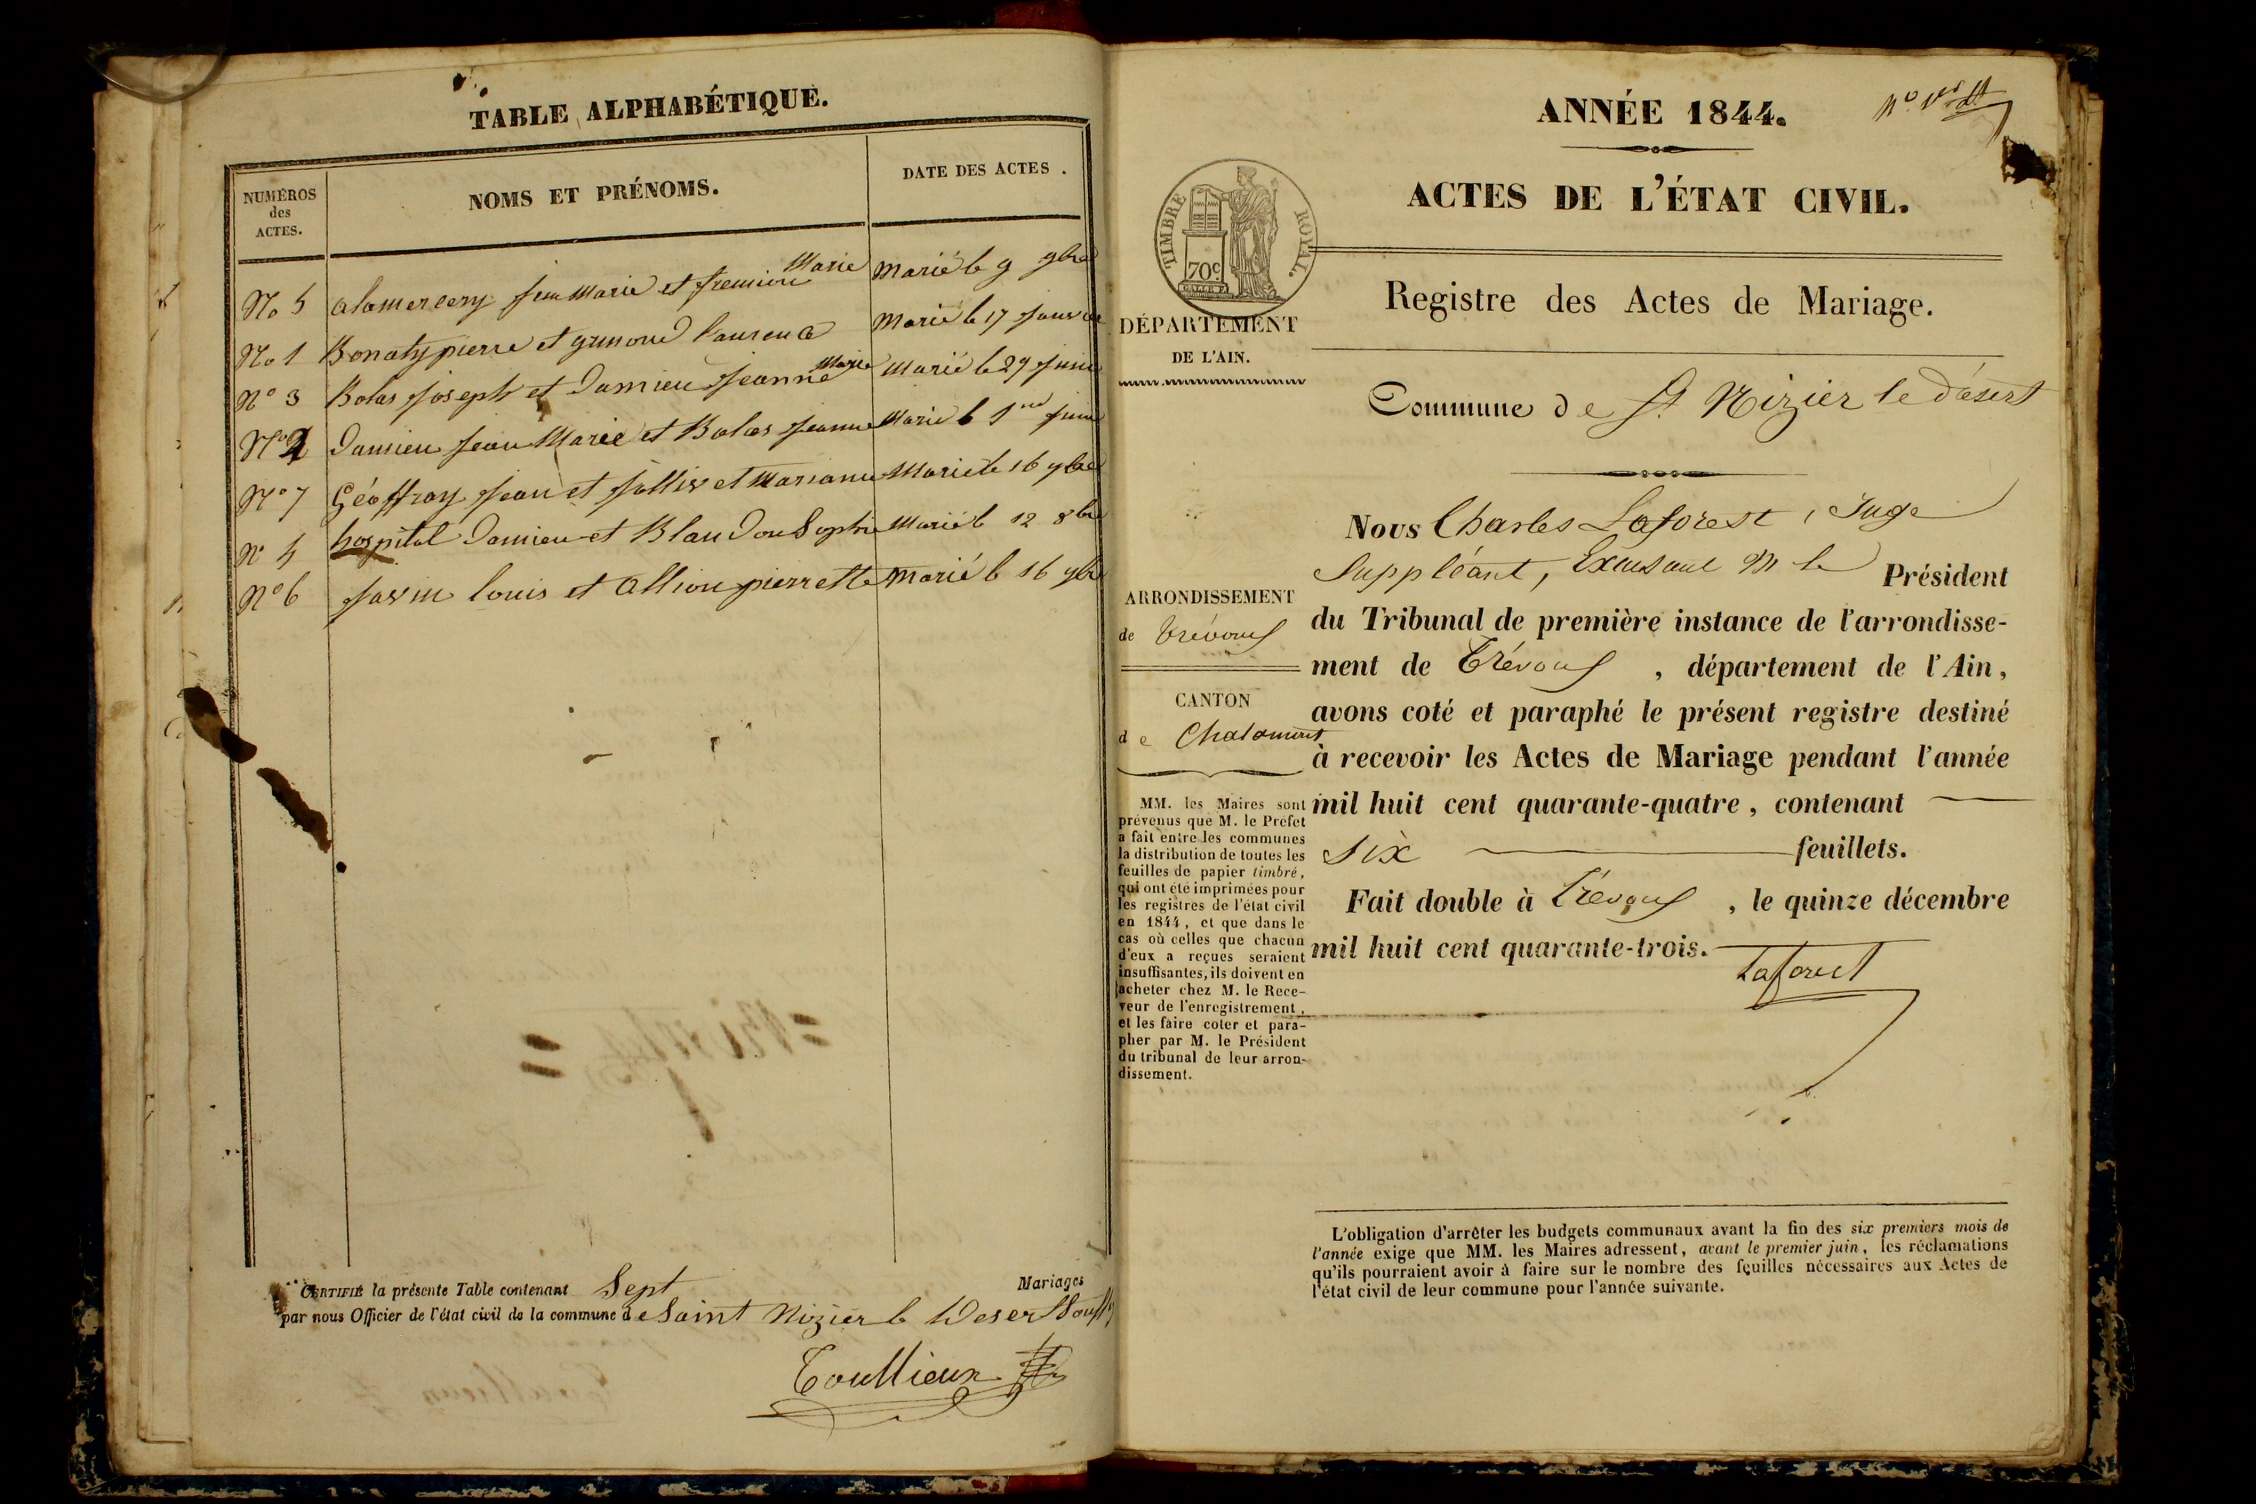 TABLE ALPHABÉTIQUE.
NUMÉROS
des
ACTES.
NOMS ET PRÉNOMS.
DATE DES ACTES.
Marie
No 5 alamercery jean Marie et fremion Marié le 9 9bre
No 1 Bonaty pierre et laurence Marié le 17 Janvier
Marie
No 3 Bolas joseph et Damieu jeanne Marié le 29 juin
No 2 Damieu jean Marie et Bolas jeanne Marié le juin
No 7 Géoffray jean et et Mariane Marié le 16 9bre
No 4 hospital Damien et Blandon Sophie Marié le 12 8bre
No 6 louis et Allion pierrette Marié le 16 9bre
CERTIFIÉ la présente Table contenant Sept Mariages
par nous Officier de l'état civil de la commune de Saint Nizier le Desert
Toullieux
No 1er
ANNÉE 1844.
ACTES DE L'ÉTAT CIVIL.
TIMBRE ROYAL.
70c
DÉPARTEMENT
DE L'AIN.
Registre des Actes de Mariage.
Commune de St Nizier le désert
ARRONDISSEMENT
de Trévoux
CANTON
de Chalamont
MM. les Maires sont
prévenus que M. le Préfet
a fait entre les communes
la distribution de toutes les
feuilles de papier timbré,
qui ont été imprimées pour
les registres de l'état civil
en 1844, et que dans le
cas où celles que chacun
d'eux a reçues seraient
insuffisantes, ils doivent en
acheter chez M. le Rece-
veur de l'enregistrement,
et les faire coter et para-
pher par M. le Président
du tribunal de leur arron-
dissement.
Nous Charles Laforest, Juge
Suppléant, Excusant Mr le Président
du Tribunal de première instance de l'arrondisse-
ment de Trévoux, département de l'Ain,
avons coté et paraphé le présent registre destiné
à recevoir les Actes de Mariage pendant l'année
mil huit cent quarante-quatre, contenant
six feuillets.
Fait double à Trévoux, le quinze décembre
mil huit cent quarante-trois.
Laforest
L'obligation d'arrêter les budgets communaux avant la fin des six premiers mois de
l'année exige que MM. les Maires adressent, avant le premier juin, les réclamations
qu'ils pourraient avoir à faire sur le nombre des feuilles nécessaires aux Actes de
l'état civil de leur commune pour l'année suivante.